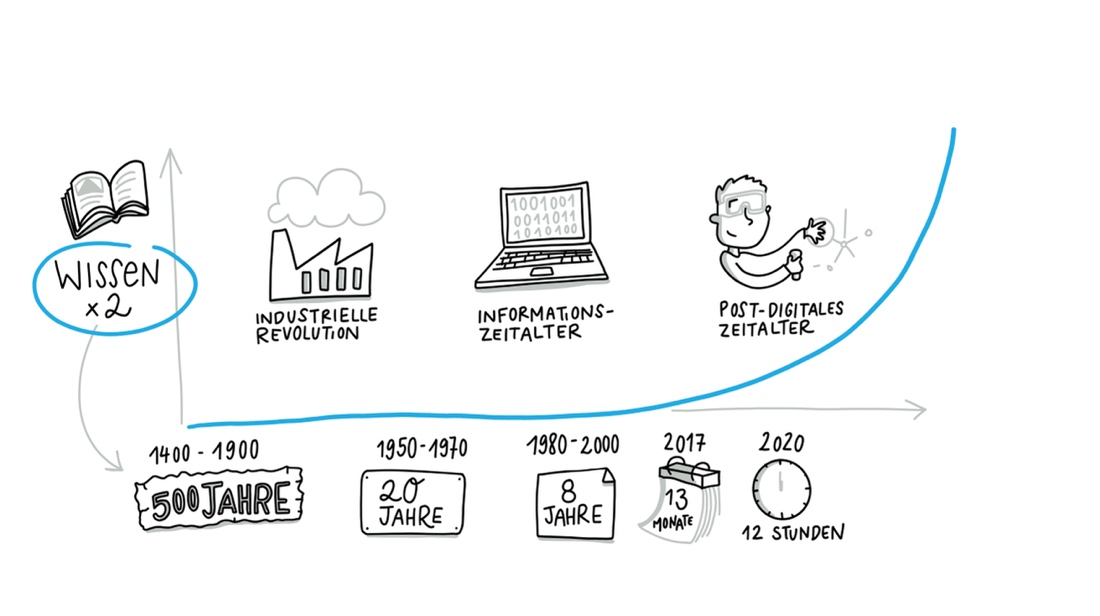 WISSEN
x2
INDUSTRIELLE
REVOLUTION
1001001
0011011
1010100
INFORMATIONS-
ZEITALTER
POST-DIGITALES
ZEITALTER
1400 - 1900
500 JAHRE
1950-1970
20
JAHRE
1980-2000
8
JAHRE
2017
13
MONATE
2020
12 STUNDEN